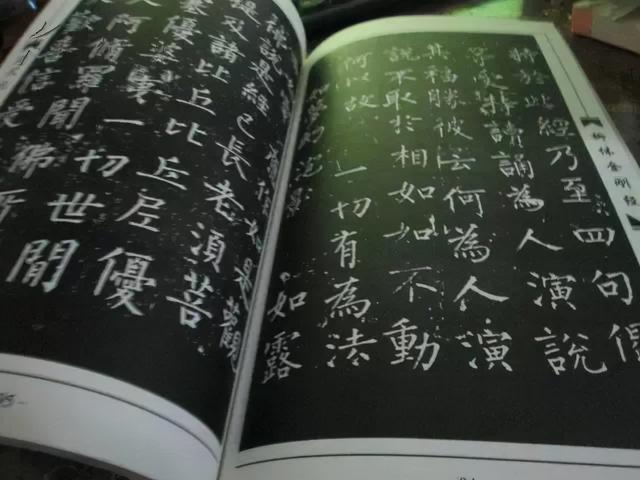 柳体金刚经
持於此經乃至四句偈
受持讀誦為人演說
其福勝彼云何為人演
說不取於相如如不動
何以故 一切有為法
如夢幻泡影 如露
應作如是觀
說是經已長老須菩
提及諸比丘比丘尼優
塞優婆夷一切世間
人阿脩羅聞佛所
歡喜信受